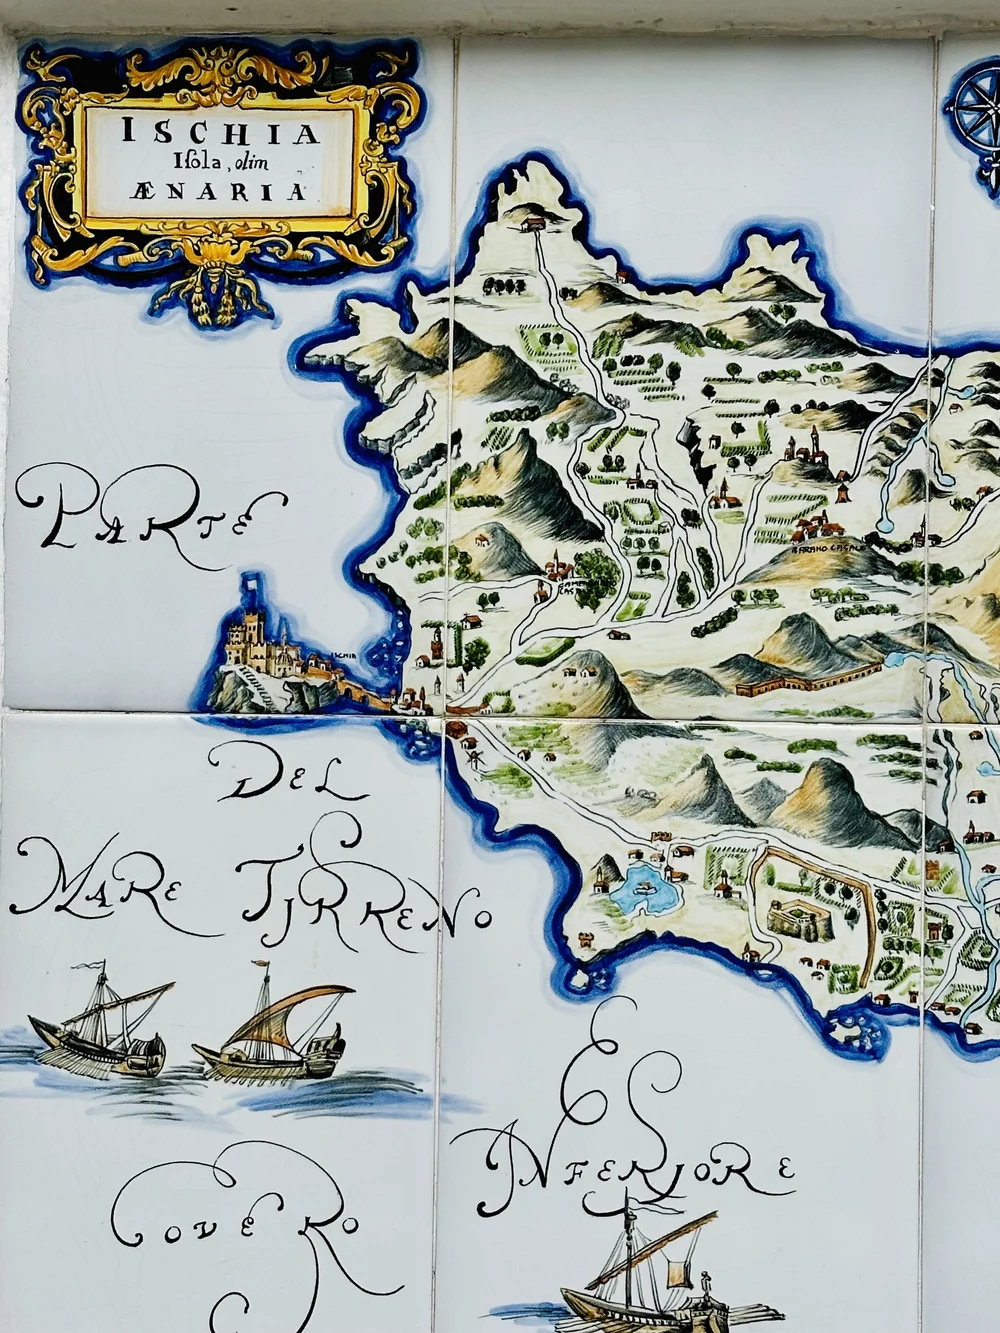 ISCHIA
Iſola, olim
ÆNARIA
PARTE
ISCHIA
BARANO CASALE
DEL
MARE TIRRENO
ET
INFERIORE
OVERO